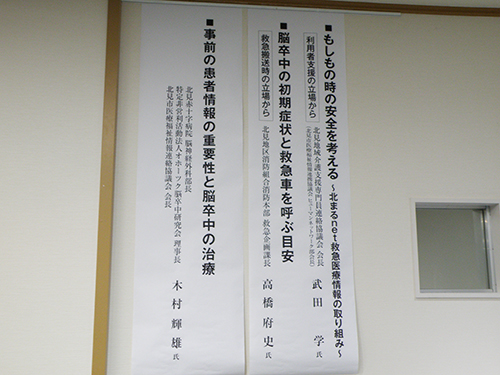 ■もしもの時の安全を考える ~北まるnet救急医療情報の取り組み~
利用者支援の立場から
北見地域介護支援専門員連絡協議会 会長
武田 学 氏
■脳卒中の初期症状と救急車を呼ぶ目安
救急搬送時の立場から
北見地区消防組合消防本部 救急企画課長
高橋 府史 氏
■事前の患者情報の重要性と脳卒中の治療
北見赤十字病院 脳神経外科部長
特定非営利活動法人オホーツク脳卒中研究会 理事長
北見市医療福祉情報連絡協議会 会長
木村 輝雄 氏